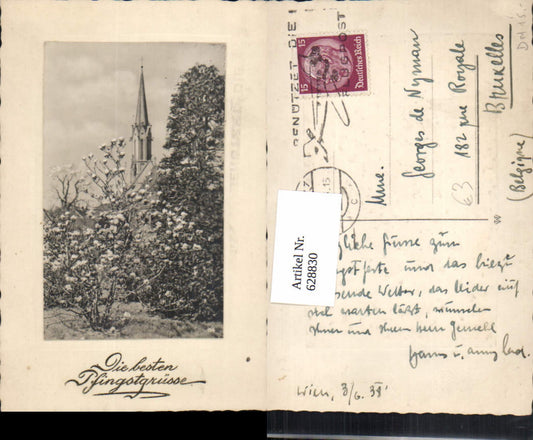 Die besten
Pfingstgrüsse
BENÜTZET DIE
FLUGPOST
15 15
Deutsches Reich
DM 15.-
Mme.
Georges de Nyman
182 rue Royale
Bruxelles
(Belgique)
63
Artikel Nr.
628830
liche Grüsse zum
und das hiezu
sende Wetter, das leider auf
sich warten lässt, wünschen
Ihnen und Ihrem Herrn Gemahl
Hans u.
Wien, 3/6. 38'